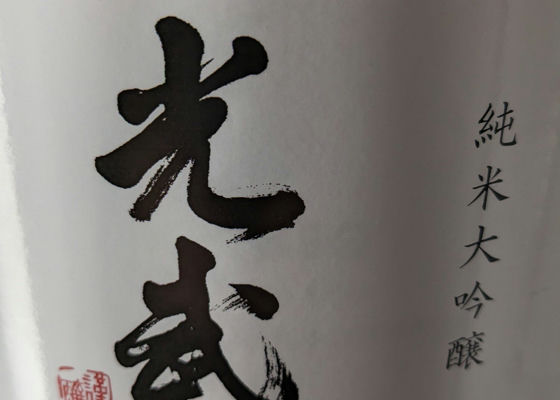 純米大吟醸
光武